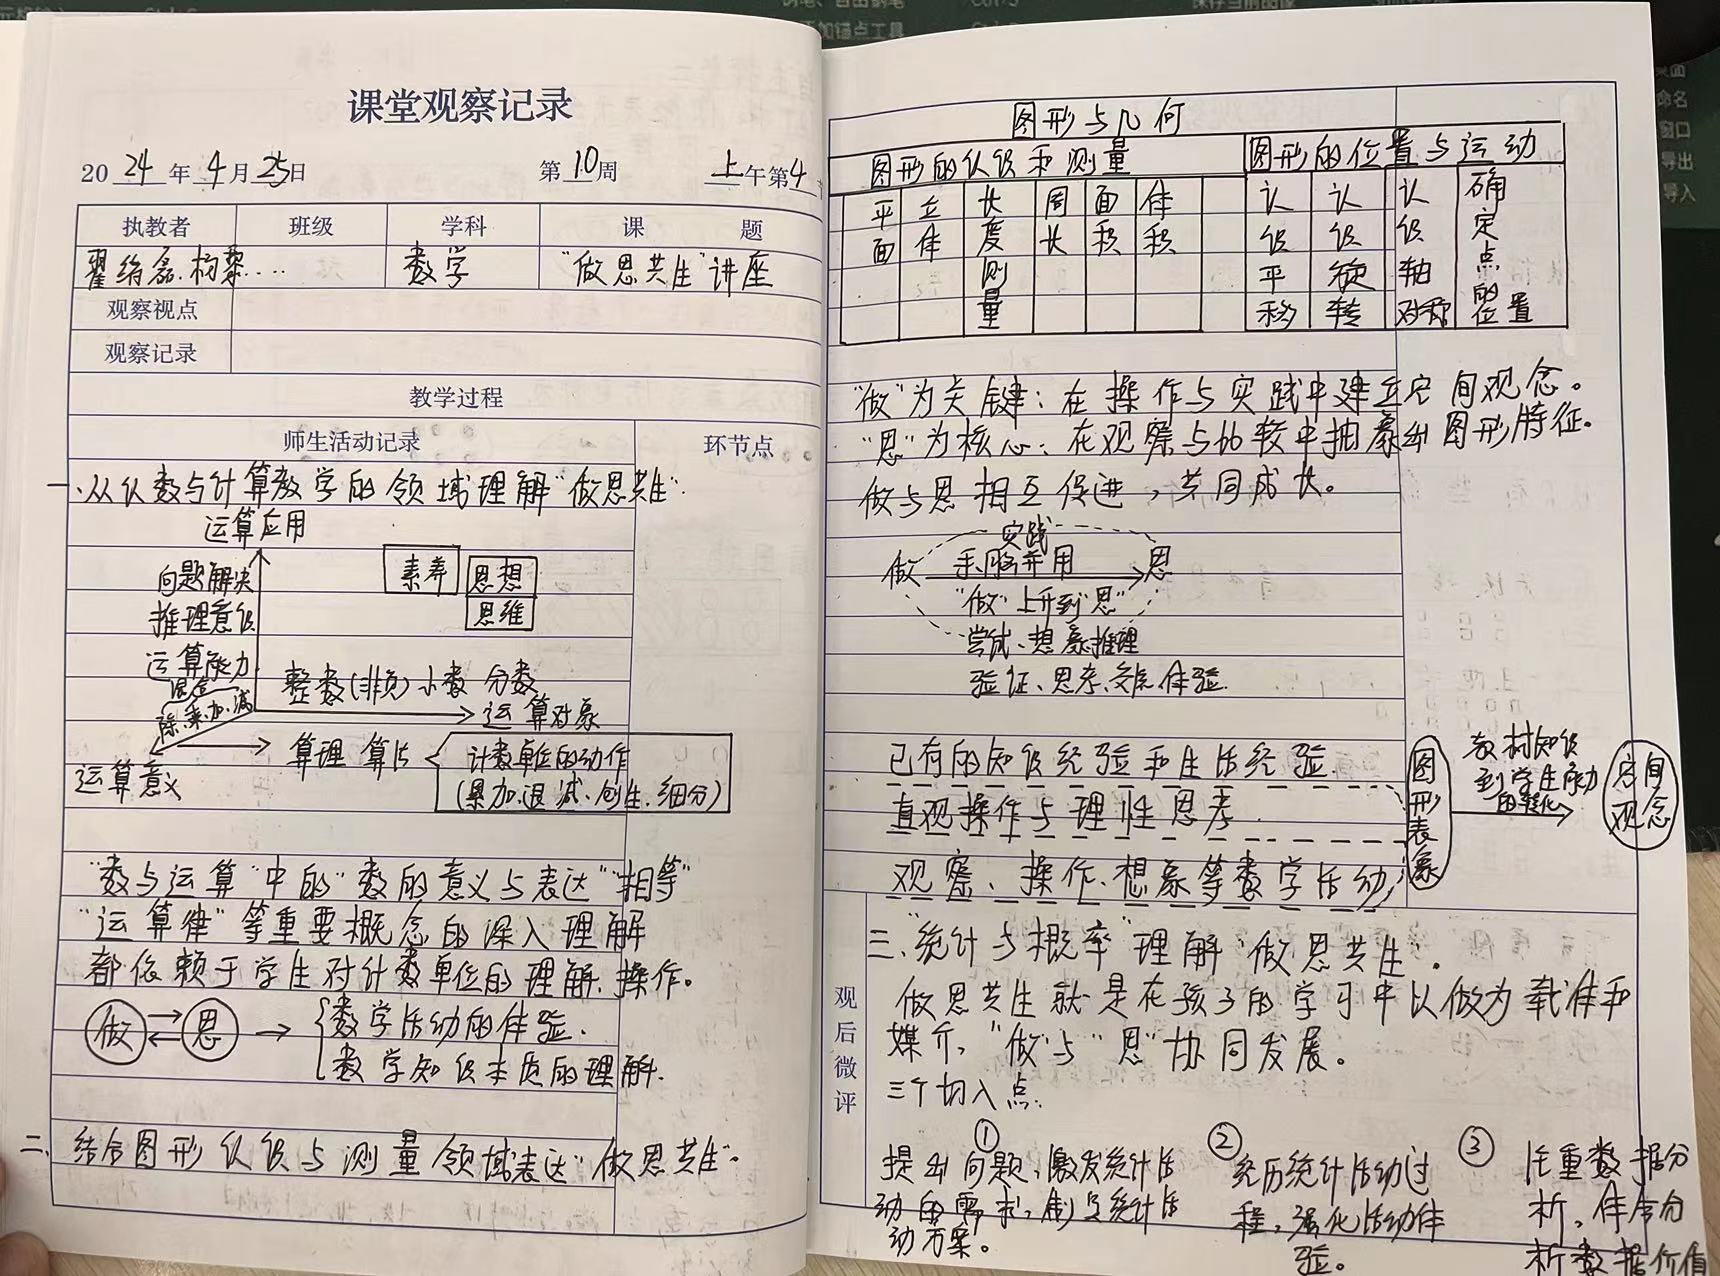 课堂观察记录
2024年4月25日 第10周 上午第4
执教者 班级 学科 课题
数学 "做思共生"讲座
观察视点
观察记录
教学过程
师生活动记录 环节点
一、从认数与计算教学的领域理解"做思共生".
运算应用
问题解决
推理意识
运算能力
素养
思想
思维
除、乘、加、减
整数(非负) 小数 分数
运算对象
运算意义
算理 算法
计数单位的动作
(累加、退减、创生、细分)
"数与运算"中的"数的意义与表达""相等"
"运算律"等重要概念的深入理解
都依赖于学生对计数单位的理解、操作。
做 思
数学活动的体验.
数学知识本质的理解.
二、结合图形认识与测量领域表达"做思共生"。
图形与几何
图形的认识和测量 图形的位置与运动
平面 立体 长度测量 周长 面积 体积 认识平移 认识旋转 认识轴对称 确定点的位置
"做"为关键：在操作与实践中建立空间观念。
"思"为核心：在观察与比较中抽象出图形特征。
做与思相互促进，共同成长。
实践
做 手、脑并用 思
"做"上升到"思"
尝试、想象、推理
验证、思考、交流、体验.
已有的知识经验和生活经验.
直观操作与理性思考.
观察、操作、想象等数学活动
图形表象
教材知识
到学生能力
的转化
空间观念
观后微评
三、"统计与概率"理解"做思共生".
做思共生就是在孩子的学习中以做为载体和
媒介，"做"与"思"协同发展。
三个切入点：
①
提出问题，激发统计活
动的需求，制定统计活
动方案。
②
经历统计活动过
程，强化活动体
验。
③
注重数据分
析，体会分
析数据价值